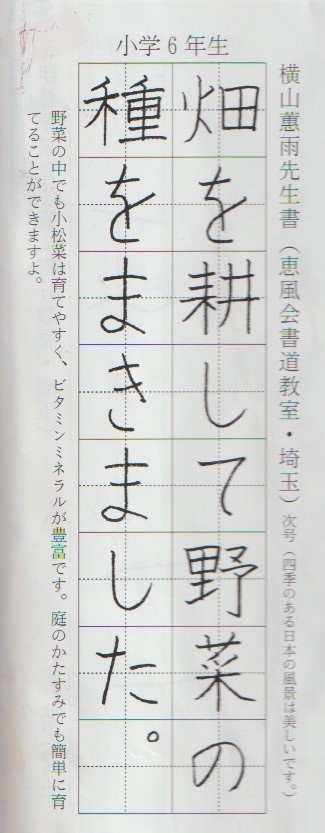 小学6年生
横山蕙雨先生書（恵風会書道教室・埼玉）次号（四季のある日本の風景は美しいです。）
畑を耕して野菜の
種をまきました。
野菜の中でも小松菜は育てやすく、ビタミンミネラルが豊富です。庭のかたすみでも簡単に育
てることができますよ。